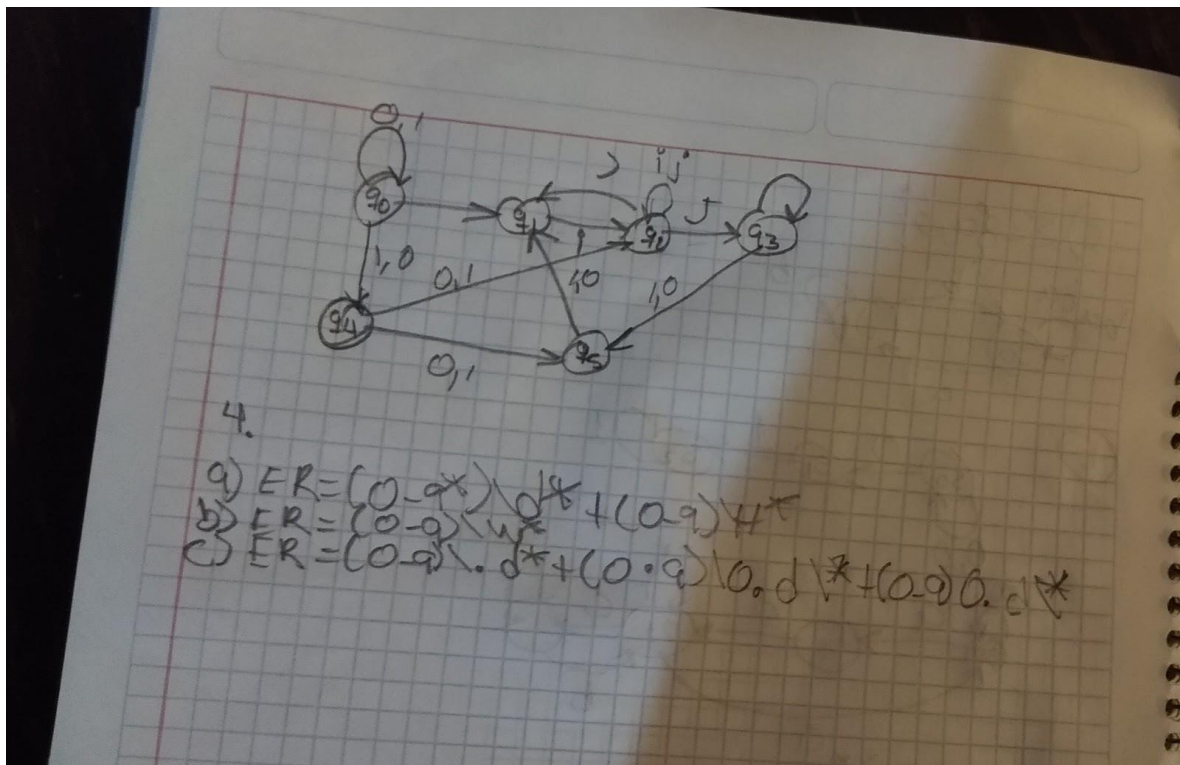 0,1
q0
q1
q3
1,0
0,1
1,0
1,0
q4
q5
0,1
4.
a) ER=(0-9*)\d*+(0-9)\H*
b) ER=(0-9)\W*
c) ER=(0-9)\.d*+(0.9)\0.d\*+(0-9)0.d\*